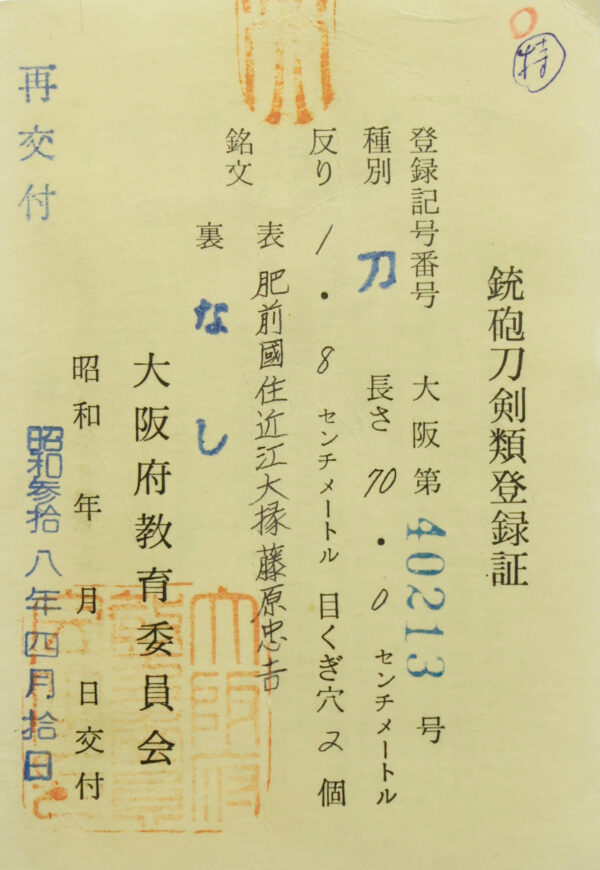 特
銃砲刀剣類登録証
登録記号番号 大阪第 40213 号
種別 刀 長さ 70・0 センチメートル
反り 1・8 センチメートル 目くぎ穴 2 個
銘文 表 肥前國住近江大掾藤原忠吉
裏 なし
大阪府教育委員会
昭和 年 月 日交付
昭和参拾八年四月拾日
再交付